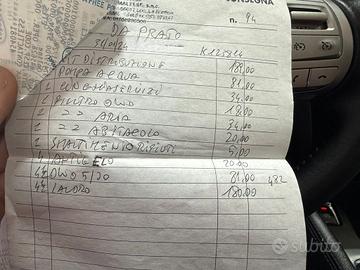 CONSEGNA
n. 94
DA PRATO
1 KIT DISTRIBUZIONE 188,00
1 POMPA ACQUA 81,00
1 CINGHIA SERVIZI 34,00
1 FILTRO OLIO 18,00
1 >> ARIA 34,00
1 >> ABITACOLO 20,00
1 SMALTIMENTO RIFIUTI 5,00
ANTIGELO 20.00
OLIO 5/30 81,00 482
LAVORO 180.00
subito